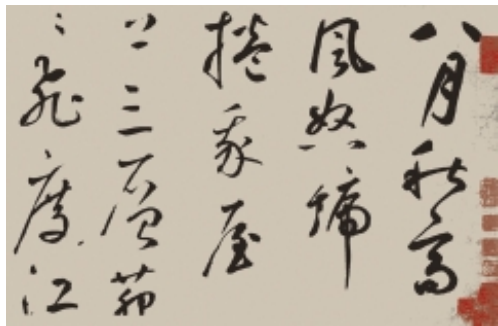 八月秋高
風怒號
捲我屋
上三層茅
〻飛度江